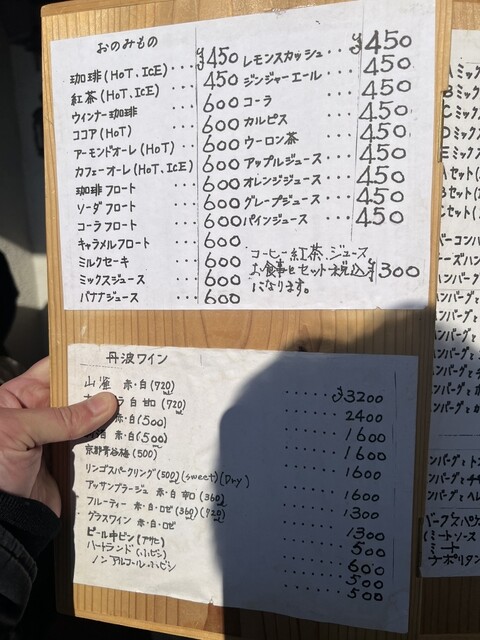 おのみもの
珈琲(HOT、ICE)・・・¥450
紅茶(HOT、ICE)・・・450
ウィンナー珈琲 600
ココア(HOT) 600
アーモンドオーレ(HOT) 600
カフェオーレ(HOT、ICE) 600
珈琲フロート・・・600
ソーダフロート・・・600
コーラフロート・・・600
キャラメルフロート 600
ミルクセーキ・・・600
ミックスジュース・・・600
バナナジュース・・・600
レモンスカッシュ・・・¥450
ジンジャーエール・・450
コーラ・・・450
カルピス・・・450
ウーロン茶・・・450
アップルジュース・・450
オレンジジュース・・450
グレープジュース・・450
パインジュース・・・450
コーヒー紅茶、ジュース
お食事とセット税込¥300
になります。
丹波ワイン
山雀 赤・白(720)‥‥‥¥3200
白 甘口(720ml)‥‥‥2400
赤・白(500)‥‥‥1600
赤・白(500)‥‥‥1600
京都青谷梅(500)‥‥‥1600
リンゴスパークリング(500)(sweet)(Dry)‥‥‥1600
アッサンブラージュ 赤・白 辛口(360)‥‥‥1300
フルーティー 赤・白・ロゼ(360)(720)‥‥‥1300
グラスワイン 赤・白・ロゼ‥‥‥500
ビール中ビン(アサヒ)‥‥‥600
ハートランド(小ビン)‥‥‥500
ノンアルコール小ビン‥‥‥500
Aミック
Bミック
Cミック
Dミック
Eミック
Aセット(
Bセット(
Cセット(
バーコンハ
ーズハン
ハンバーグ
ハンバーグ
ハンバーグと
ハンバーグと
ハンバーグと
ハンバーグとか
ハンバーグとト
ハンバーグとチ
ハンバーグとヘ
バーグスパゲ
(ミートソース
ナポリタン